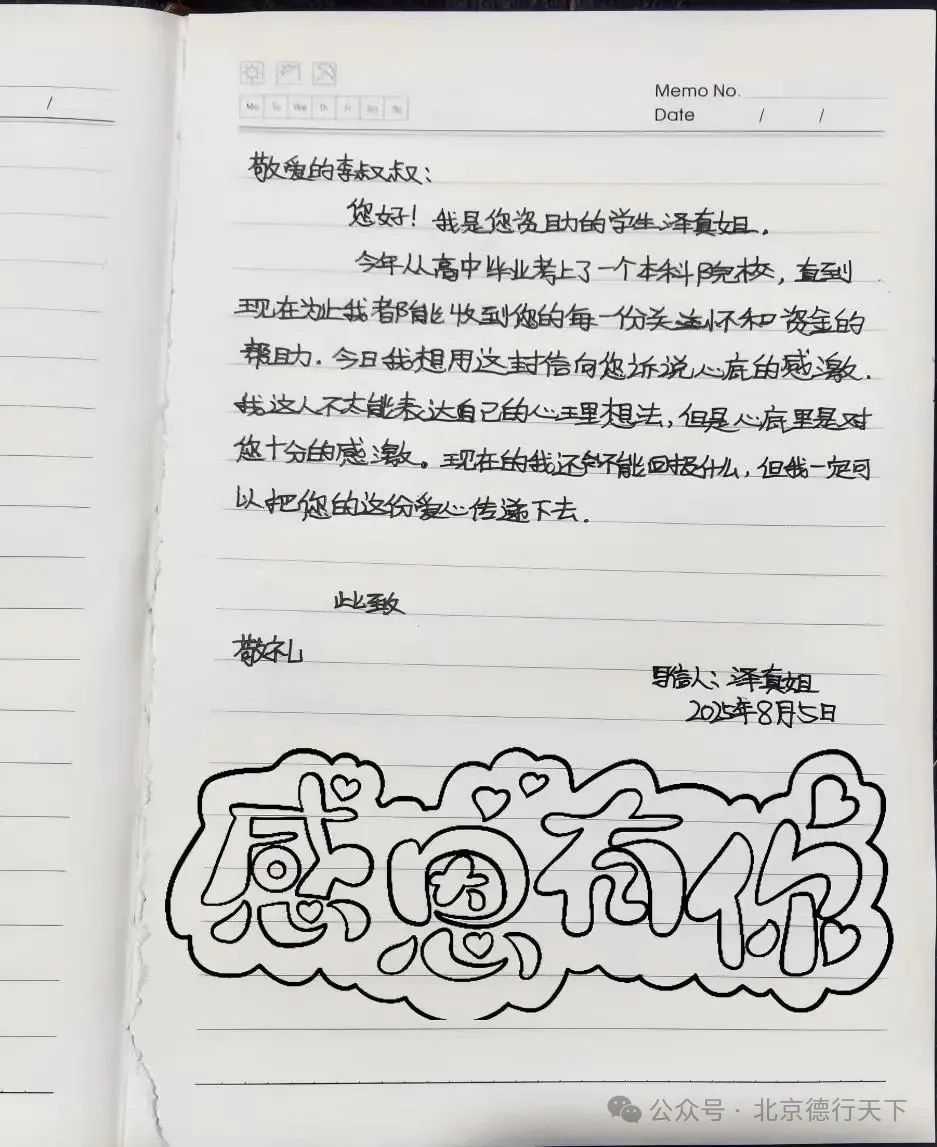 Memo No.
Mo Tu We Th Fr Sa Su
Date / /
/
敬爱的李叔叔：
您好！我是您资助的学生泽真姐.
今年从高中毕业考上了一个本科院校，直到
现在为止我都能收到您的每一份关怀和资金的
帮助.今日我想用这封信向您诉说心底的感激.
我这人不太能表达自己的心理想法,但是心底里是对
您十分的感激。现在的我还不能回报什么,但我一定可
以把您的这份爱心传递下去.
此致
敬礼
写信人：泽真姐
2025年8月5日
感恩有你
公众号·北京德行天下